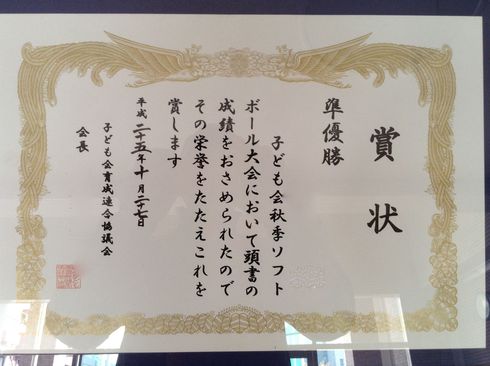 賞状
準優勝
子ども会秋季ソフト
ボール大会において頭書の
成績をおさめられたので
その栄誉をたたえこれを
賞します
平成二十五年十月二十七日
子ども会育成連合協議会
会長